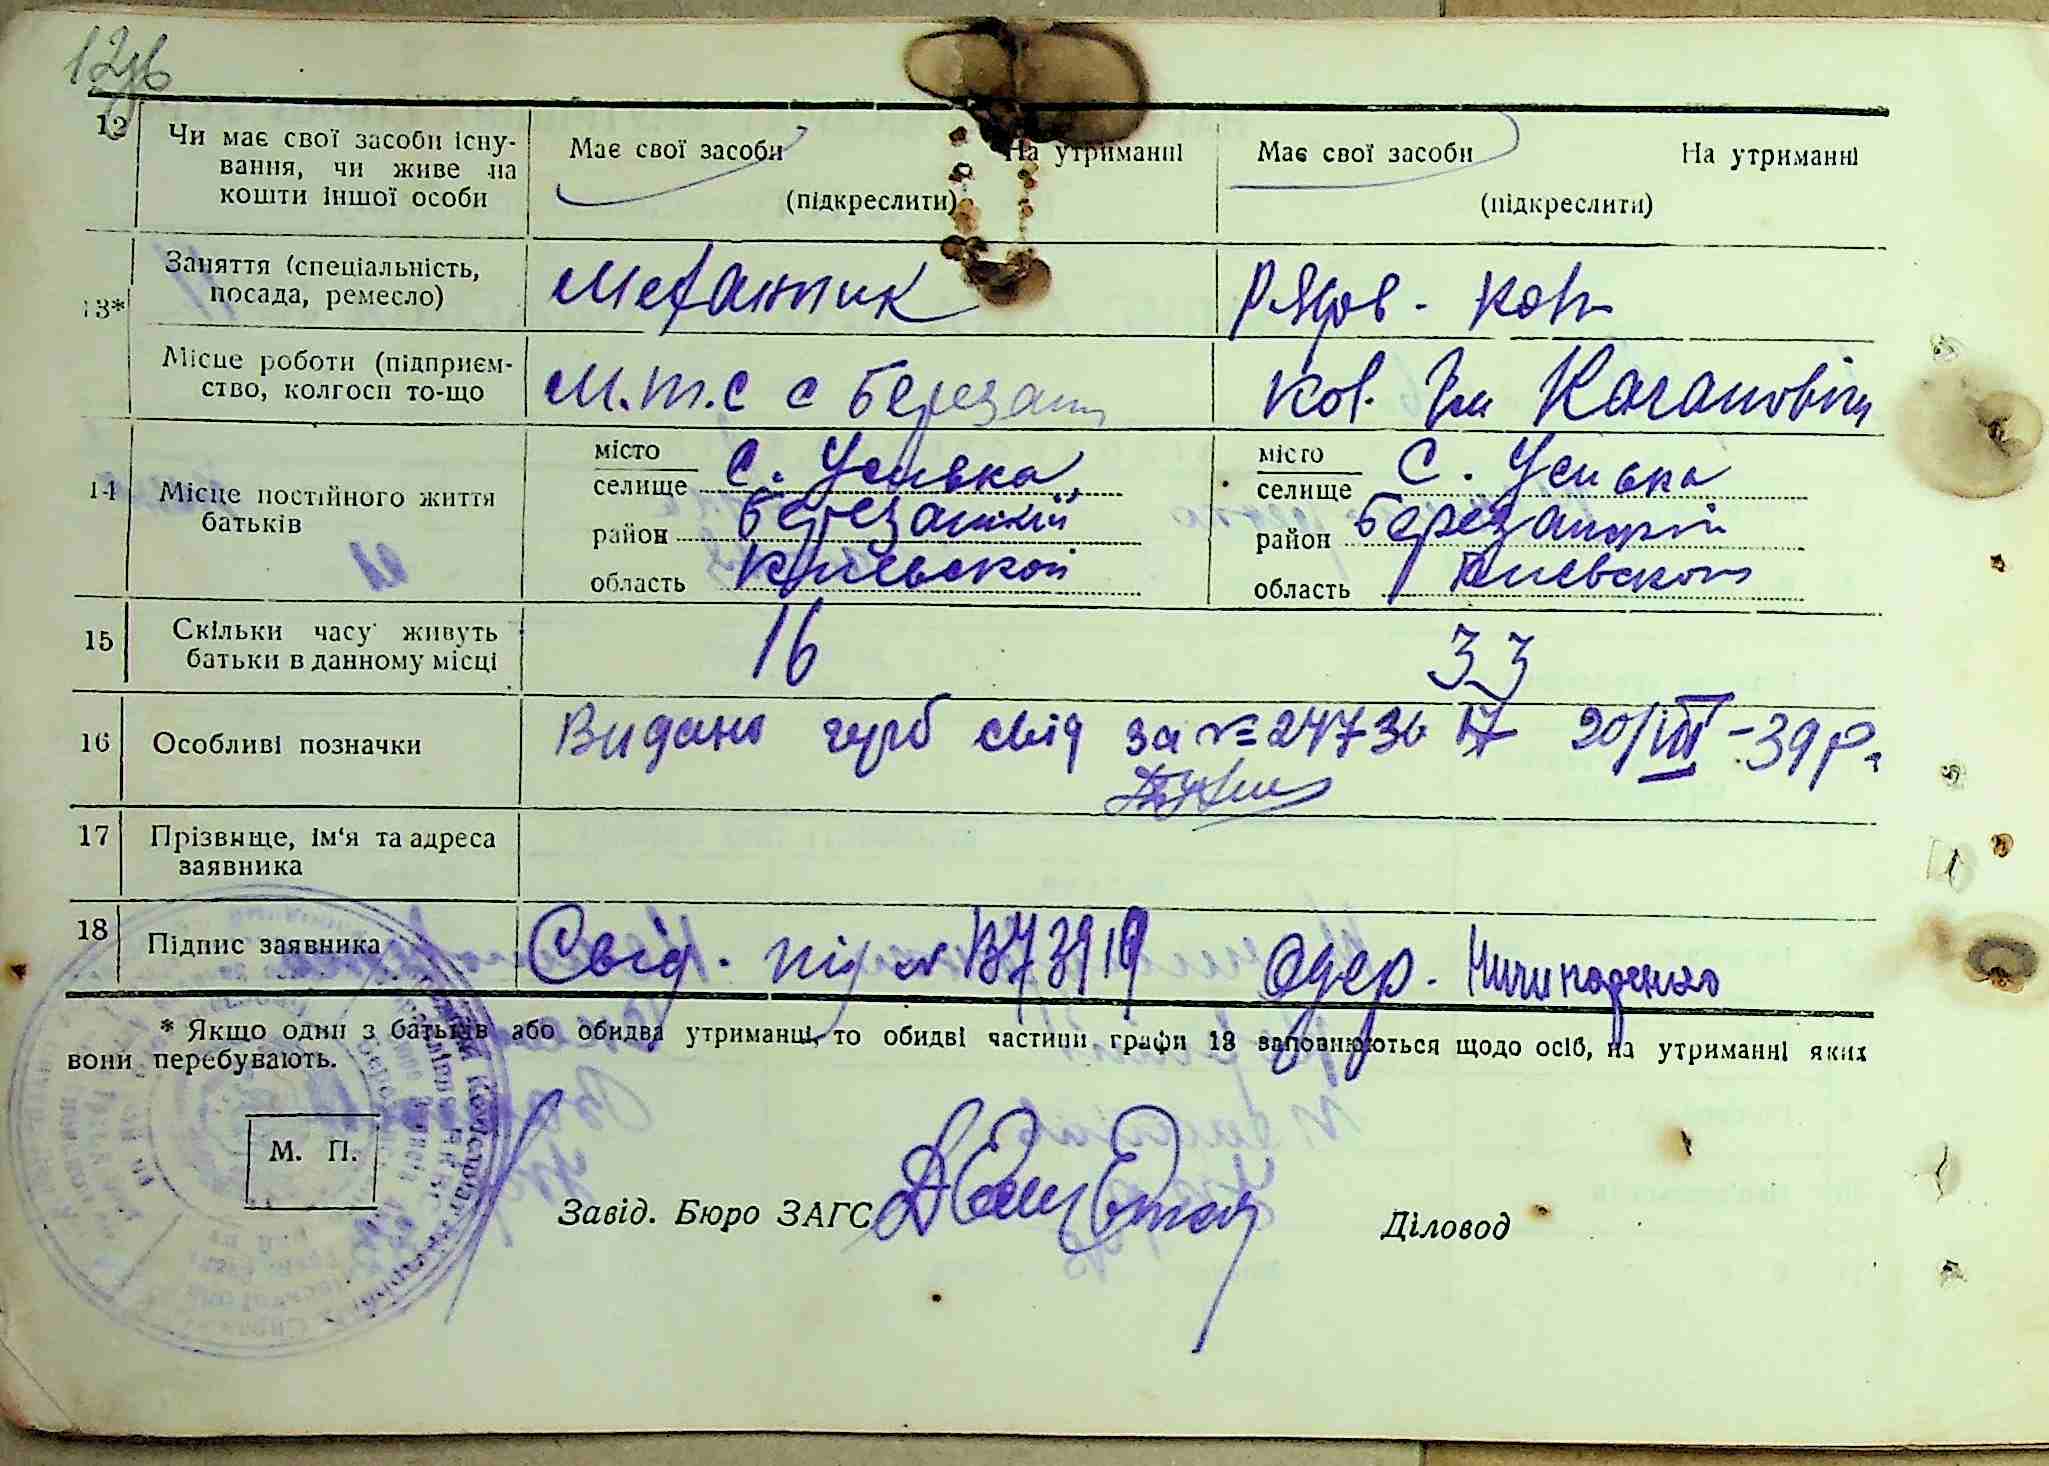 12
Чи має свої засоби існу-
вання, чи живе на
кошти іншої особи
Має свої засоби На утриманні
(підкреслити)
Має свої засоби На утриманні
(підкреслити)
13*
Заняття (спеціальність,
посада, ремесло)
Механик
Рядов. кол
Місце роботи (підприєм-
ство, колгосп то-що
М.т.с с Березань
Кол. Ім Кагановіча
14
Місце постійного життя
батьків
місто
селище С. Усивка
район Березанский
область Киевской
місто
селище С. Усивка
район Березанский
область Киевской
15
Скільки часу живуть
батьки в данному місці
16
33
16
Особливі позначки
Видано герб свід за № 24736 20/VIII-39 р.
17
Прізвище, ім'я та адреса
заявника
18
Підпис заявника
Свід. № 1373919 Одер. Ничипоренко
* Якщо один з батьків або обидва утриманці, то обидві частини графи 13 заповнюються щодо осіб, на утриманні яких
вони перебувають.
М. П.
Завід. Бюро ЗАГС
Діловод